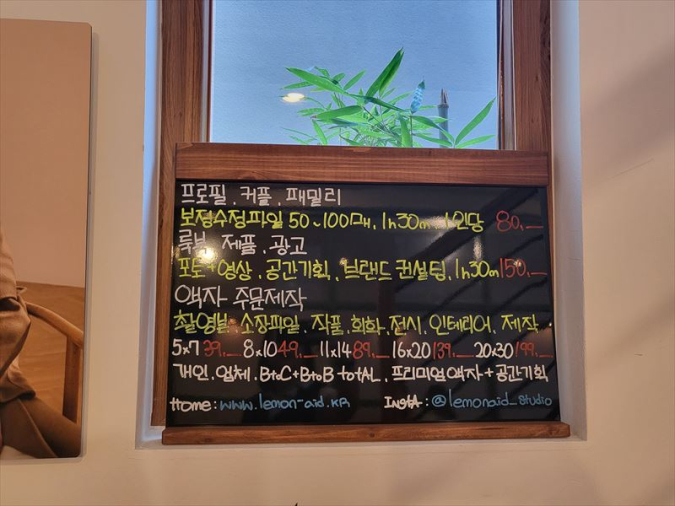 프로필. 커플. 패밀리
보정수정파일 50~100매. 1h30m. 1인당 80,—
룩북 제품. 광고
포토+영상. 공간기획. 브랜드 컨설팅. 1h30m 150,—
액자 주문제작
촬영본. 소장파일. 작품. 회화. 전시. 인테리어. 제작
5x7 39,— 8x10 49,— 11x14 89,— 16x20 139,— 20x30 199,—
개인. 업체. BtoC+BtoB totAL. 프리미엄액자+공간기획
Home: www.lemon-aid.kR InstA: @lemonaid_studio